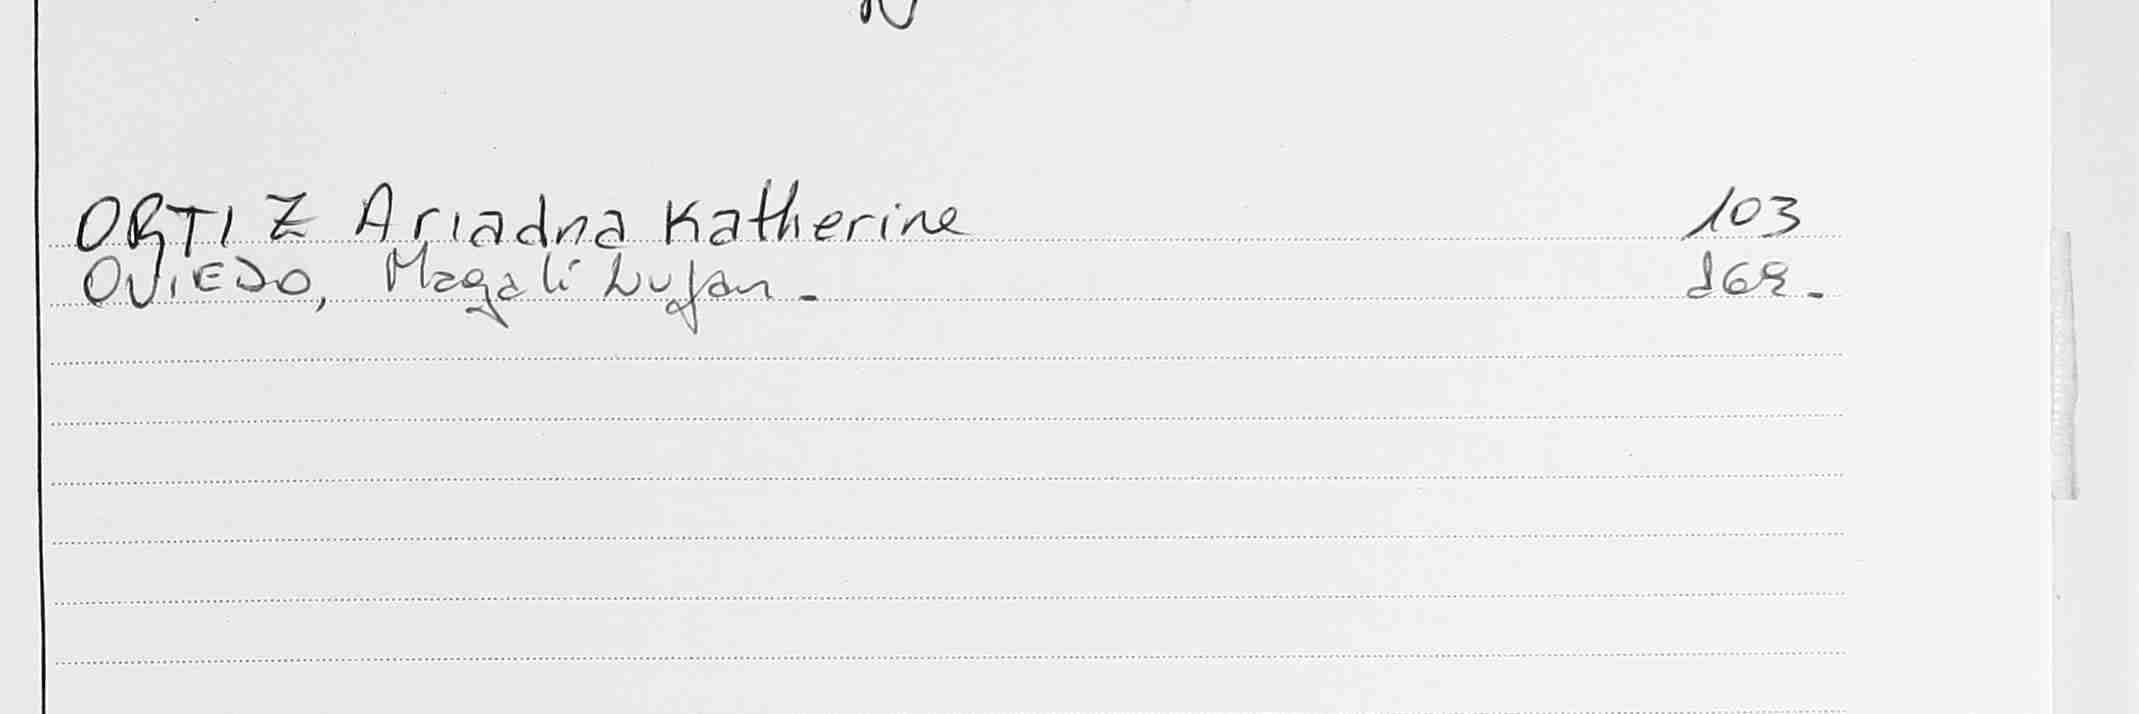 ORTIZ Ariadna Katherine 103
OVIEDO, Magali Lujan - 168.